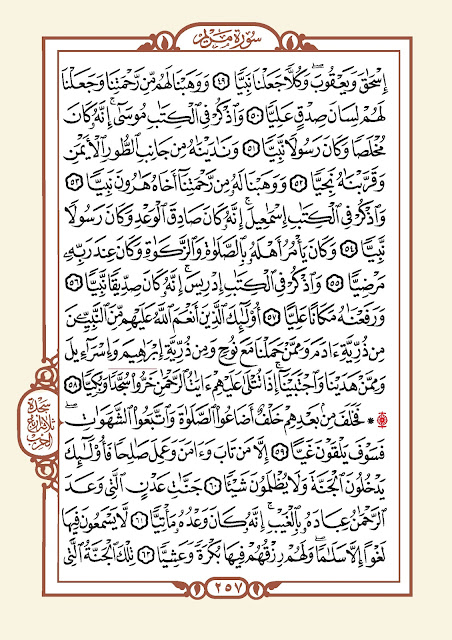 سُورَةُ مَرْيَم
إِسْحَٰقَ وَيَعْقُوبَۖ وَكُلًّا جَعَلْنَا نَبِيًّا ٤٩ وَوَهَبْنَا لَهُم مِّن رَّحْمَتِنَا وَجَعَلْنَا
لَهُمْ لِسَانَ صِدْقٍ عَلِيًّا ٥٠ وَاذْكُرْ فِي الْكِتَٰبِ مُوسَىٰٓۚ إِنَّهُۥ كَانَ
مُخْلَصًا وَكَانَ رَسُولًا نَّبِيًّا ٥١ وَنَٰدَيْنَٰهُ مِن جَانِبِ الطُّورِ الْأَيْمَنِ
وَقَرَّبْنَٰهُ نَجِيًّا ٥٢ وَوَهَبْنَا لَهُۥ مِن رَّحْمَتِنَآ أَخَاهُ هَٰرُونَ نَبِيًّا ٥٣
وَاذْكُرْ فِي الْكِتَٰبِ إِسْمَٰعِيلَۚ إِنَّهُۥ كَانَ صَادِقَ الْوَعْدِ وَكَانَ رَسُولًا
نَّبِيًّا ٥٤ وَكَانَ يَأْمُرُ أَهْلَهُۥ بِالصَّلَوٰةِ وَالزَّكَوٰةِ وَكَانَ عِندَ رَبِّهِۦ
مَرْضِيًّا ٥٥ وَاذْكُرْ فِي الْكِتَٰبِ إِدْرِيسَۚ إِنَّهُۥ كَانَ صِدِّيقًا نَّبِيًّا ٥٦
وَرَفَعْنَٰهُ مَكَانًا عَلِيًّا ٥٧ أُوْلَٰٓئِكَ الَّذِينَ أَنْعَمَ اللَّهُ عَلَيْهِم مِّنَ النَّبِيِّۦنَ
مِن ذُرِّيَّةِ ءَادَمَ وَمِمَّنْ حَمَلْنَا مَعَ نُوحٍ وَمِن ذُرِّيَّةِ إِبْرَٰهِيمَ وَإِسْرَٰٓءِيلَ
وَمِمَّنْ هَدَيْنَا وَاجْتَبَيْنَآۚ إِذَا تُتْلَىٰ عَلَيْهِمْ ءَايَٰتُ الرَّحْمَٰنِ خَرُّوا۟ سُجَّدًا وَبُكِيًّا ٥٨
۩ * فَخَلَفَ مِنۢ بَعْدِهِمْ خَلْفٌ أَضَاعُوا الصَّلَوٰةَ وَاتَّبَعُوا الشَّهَوَٰتِۖ
فَسَوْفَ يَلْقَوْنَ غَيًّا ٥٩ إِلَّا مَن تَابَ وَءَامَنَ وَعَمِلَ صَٰلِحًا فَأُوْلَٰٓئِكَ
يَدْخُلُونَ الْجَنَّةَ وَلَا يُظْلَمُونَ شَيْـًٔا ٦٠ جَنَّٰتِ عَدْنٍ الَّتِي وَعَدَ
الرَّحْمَٰنُ عِبَادَهُۥ بِالْغَيْبِۚ إِنَّهُۥ كَانَ وَعْدُهُۥ مَأْتِيًّا ٦١ لَّا يَسْمَعُونَ فِيهَا
لَغْوًا إِلَّا سَلَٰمًاۖ وَلَهُمْ رِزْقُهُمْ فِيهَا بُكْرَةً وَعَشِيًّا ٦٢ تِلْكَ الْجَنَّةُ الَّتِي
سجدة
ثلاثة أرباع
الحزب
٢٥٧